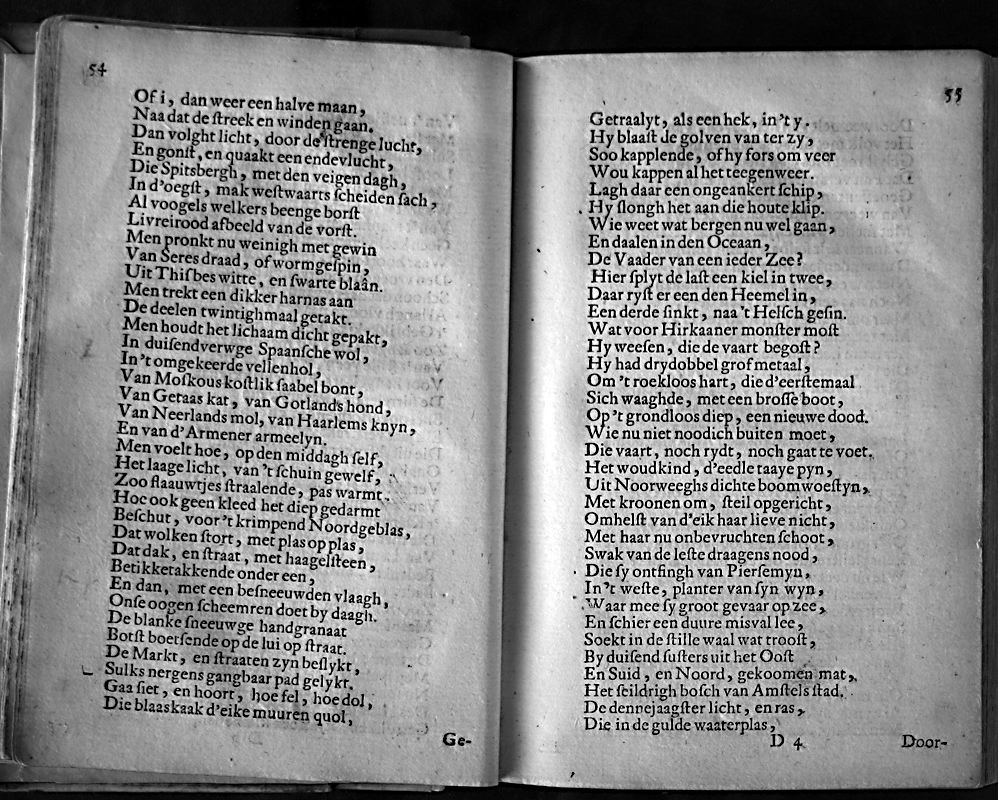 54
Of i, dan weer een halve maan,
Naa dat de ſtreek en winden gaan.
Dan volght licht, door de ſtrenge lucht,
En gonſt, en quaakt een endevlucht,
Die Spitsbergh, met den veigen dagh,
In d'oegſt, mak weſtwaarts ſcheiden ſach,
Al voogels welkers beenge borſt
Livreirood afbeeld van de vorſt.
Men pronkt nu weinigh met gewin
Van Seres draad, of wormgeſpin,
Uit Thiſbes witte, en ſwarte blaân.
Men trekt een dikker harnas aan
De deelen twintighmaal getakt.
Men houdt het lichaam dicht gepakt,
In duiſendverwge Spaanſche wol,
In't omgekeerde vellenhol,
Van Moſkous koſtlik ſaabel bont,
Van Getaas kat, van Gotlands hond,
Van Neerlands mol, van Haarlems knyn,
En van d'Armener armeelyn.
Men voelt hoe, op den middagh ſelf,
Het laage licht, van 't ſchuin gewelf,
Zoo flaauwtjes ſtraalende, pas warmt.
Hoe ook geen kleed het diep gedarmt
Beſchut, voor 't krimpend Noordgeblas,
Dat wolken ſtort, met plas op plas,
Dat dak, en ſtraat, met haagelſteen,
Betikketakkende onder een,
En dan, met een beſneeuwden vlaagh,
Onſe oogen ſcheemren doet by daagh.
De blanke ſneeuwge handgranaat
Botſt boetſende op de lui op ſtraat.
De Markt, en ſtraaten zyn beſlykt,
Sulks nergens gangbaar pad gelykt.
Gaa ſiet, en hoort, hoe fel, hoe dol,
Die blaaskaak d'eike muuren quol,
Ge-
55
Getraalyt, als een hek, in 't y.
Hy blaaſt de golven van ter zy,
Soo kapplende, of hy fors om veer
Wou kappen al het teegenweer.
Lagh daar een ongeankert ſchip,
Hy ſlongh het aan die houte klip.
Wie weet wat bergen nu wel gaan,
En daalen in den Oceaan,
De Vaader van een ieder Zee?
Hier ſplyt de laſt een kiel in twee,
Daar ryſt er een den Heemel in,
Een derde ſinkt, naa 't Helſch geſin.
Wat voor Hirkaaner monſter moſt
Hy weeſen, die de vaart begoſt?
Hy had drydobbel grof metaal,
Om 't roekloos hart, die d'eerſtemaal
Sich waaghde, met een broſſe boot,
Op 't grondloos diep, een nieuwe dood.
Wie nu niet noodich buiten moet,
Die vaart, noch rydt, noch gaat te voet.
Het woudkind, d'eedle taaye pyn,
Uit Noorweeghs dichte boomwoeſtyn,
Met kroonen om, ſteil opgericht,
Omhelſt van d'eik haar lieve nicht,
Met haar nu onbevruchten ſchoot,
Swak van de leſte draagens nood,
Die ſy ontfingh van Pierſemyn,
In 't weſte, planter van ſyn wyn,
Waar mee ſy groot gevaar op zee,
En ſchier een duure misval lee,
Soekt in de ſtille waal wat trooſt,
By duiſend ſuſters uit het Ooſt
En Suid, en Noord, gekoomen mat,
Het ſeildrigh boſch van Amſtels ſtad.
De dennejaagſter licht, en ras,
Die in de gulde waaterplas,
D 4
Door-